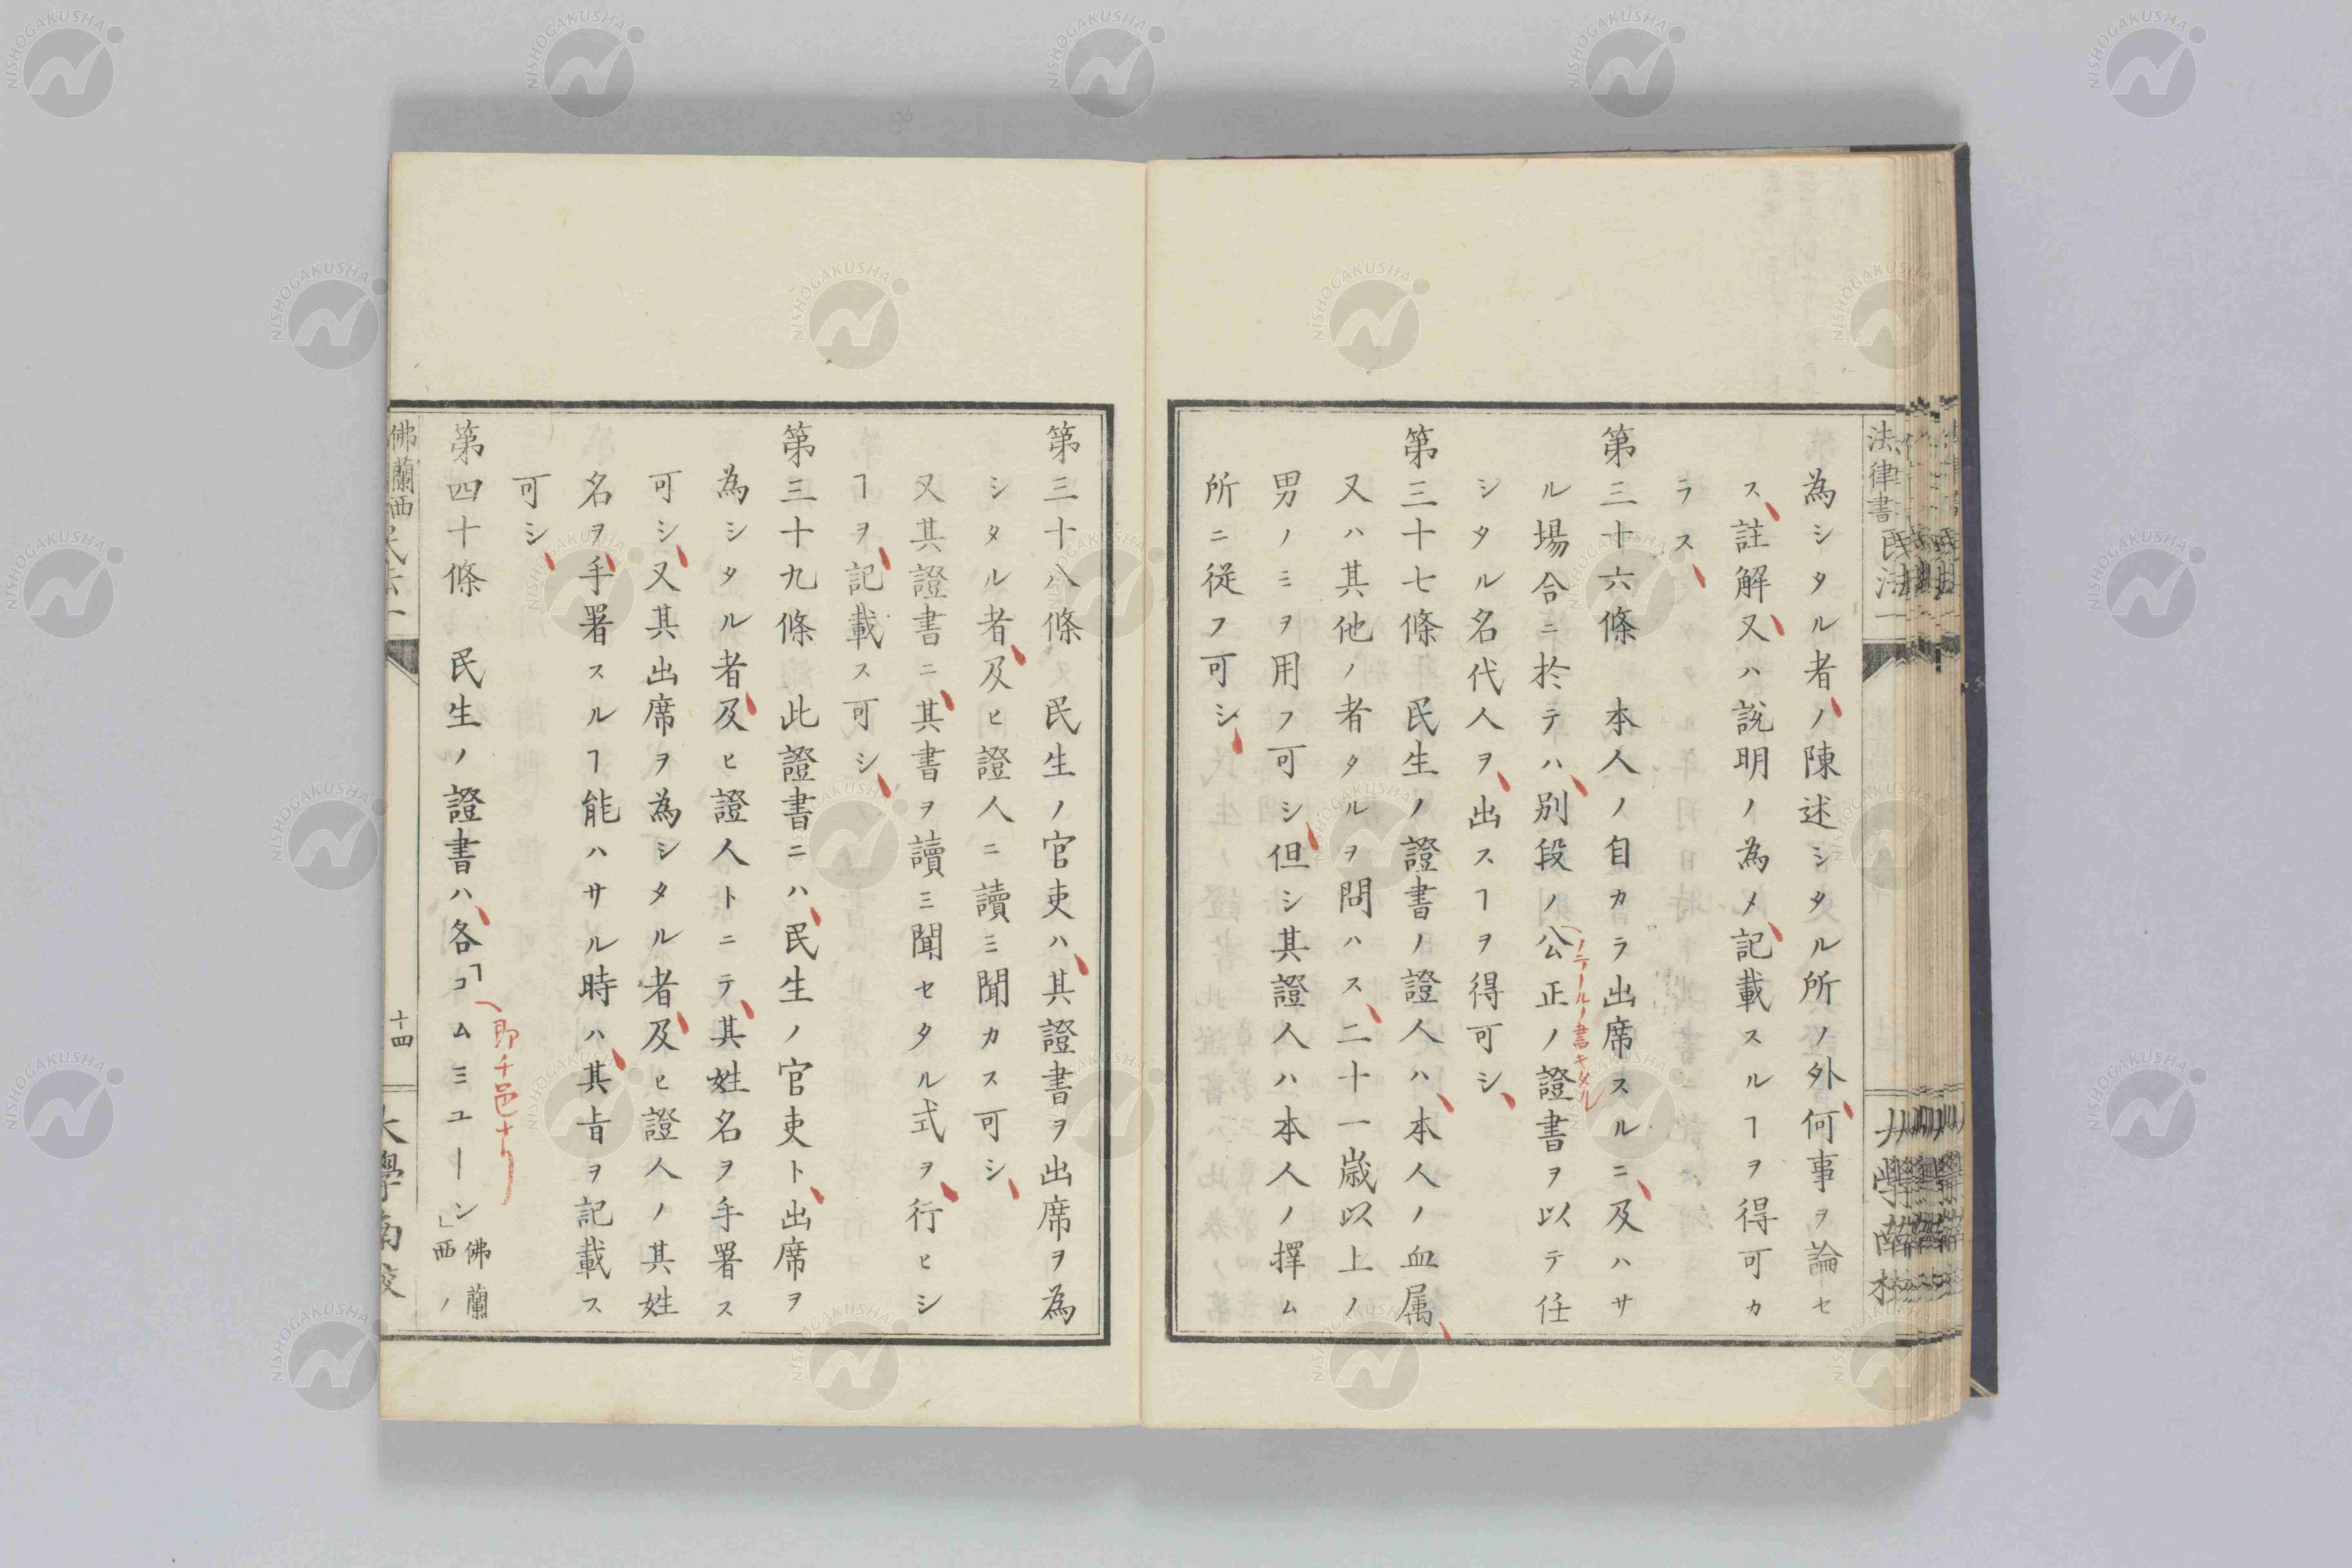 法律書 民法一
為シタル者ノ陳述シタル所ノ外何事ヲ論セ
ス註解又ハ説明ノ為メ記載スルヿヲ得可カ
ラス
第三十六條 本人ノ自カラ出席スルニ及ハサ
ル場合ニ於テハ別段ノ公正ノ證書ヲ以テ任
シタル名代人ヲ出スヿヲ得可シ
第三十七條 民生ノ證書ノ證人ハ本人ノ血属
又ハ其他ノ者タルヲ問ハス二十一歳以上ノ
男ノミヲ用フ可シ但シ其證人ハ本人ノ擇ム
所ニ従フ可シ
第三十八條 民生ノ官吏ハ其證書ヲ出席ヲ為
シタル者及ヒ證人ニ讀ミ聞カス可シ
又其證書ニ其書ヲ讀ミ聞セタル式ヲ行ヒシ
ヿヲ記載ス可シ
第三十九條 此證書ニハ民生ノ官吏ト出席ヲ
為シタル者及ヒ證人トニテ其姓名ヲ手署ス
可シ又其出席ヲ為シタル者及ヒ證人ノ其姓
名ヲ手署スルヿ能ハサル時ハ其旨ヲ記載ス
可シ
即チ邑ナリ
第四十條 民生ノ證書ハ各「コムミユーン」佛蘭西ノ
佛蘭西
十四
NISHOGAKUSHA